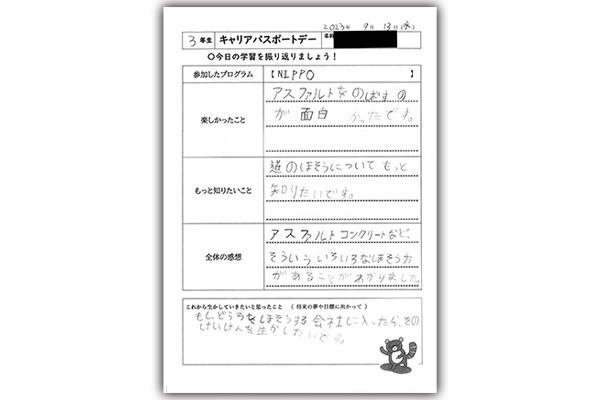 2023年 9月 13日(水)
3年生 キャリアパスポートデー 名前
〇今日の学習を振り返りましょう！
参加したプログラム 【NIPPO 】
楽しかったこと
アスファルトをのばすの
が面白かったです。
もっと知りたいこと
道のほそうについてもっと
知りたいです。
全体の感想
アスファルトコンクリートなど、
そういういろいろなほそう方
があることがわかりました。
これから生かしていきたいと思ったこと （将来の夢や目標に向かって）
もし、どうろをほそうする会社に入ったら、その
けいけんを生かしたいです。